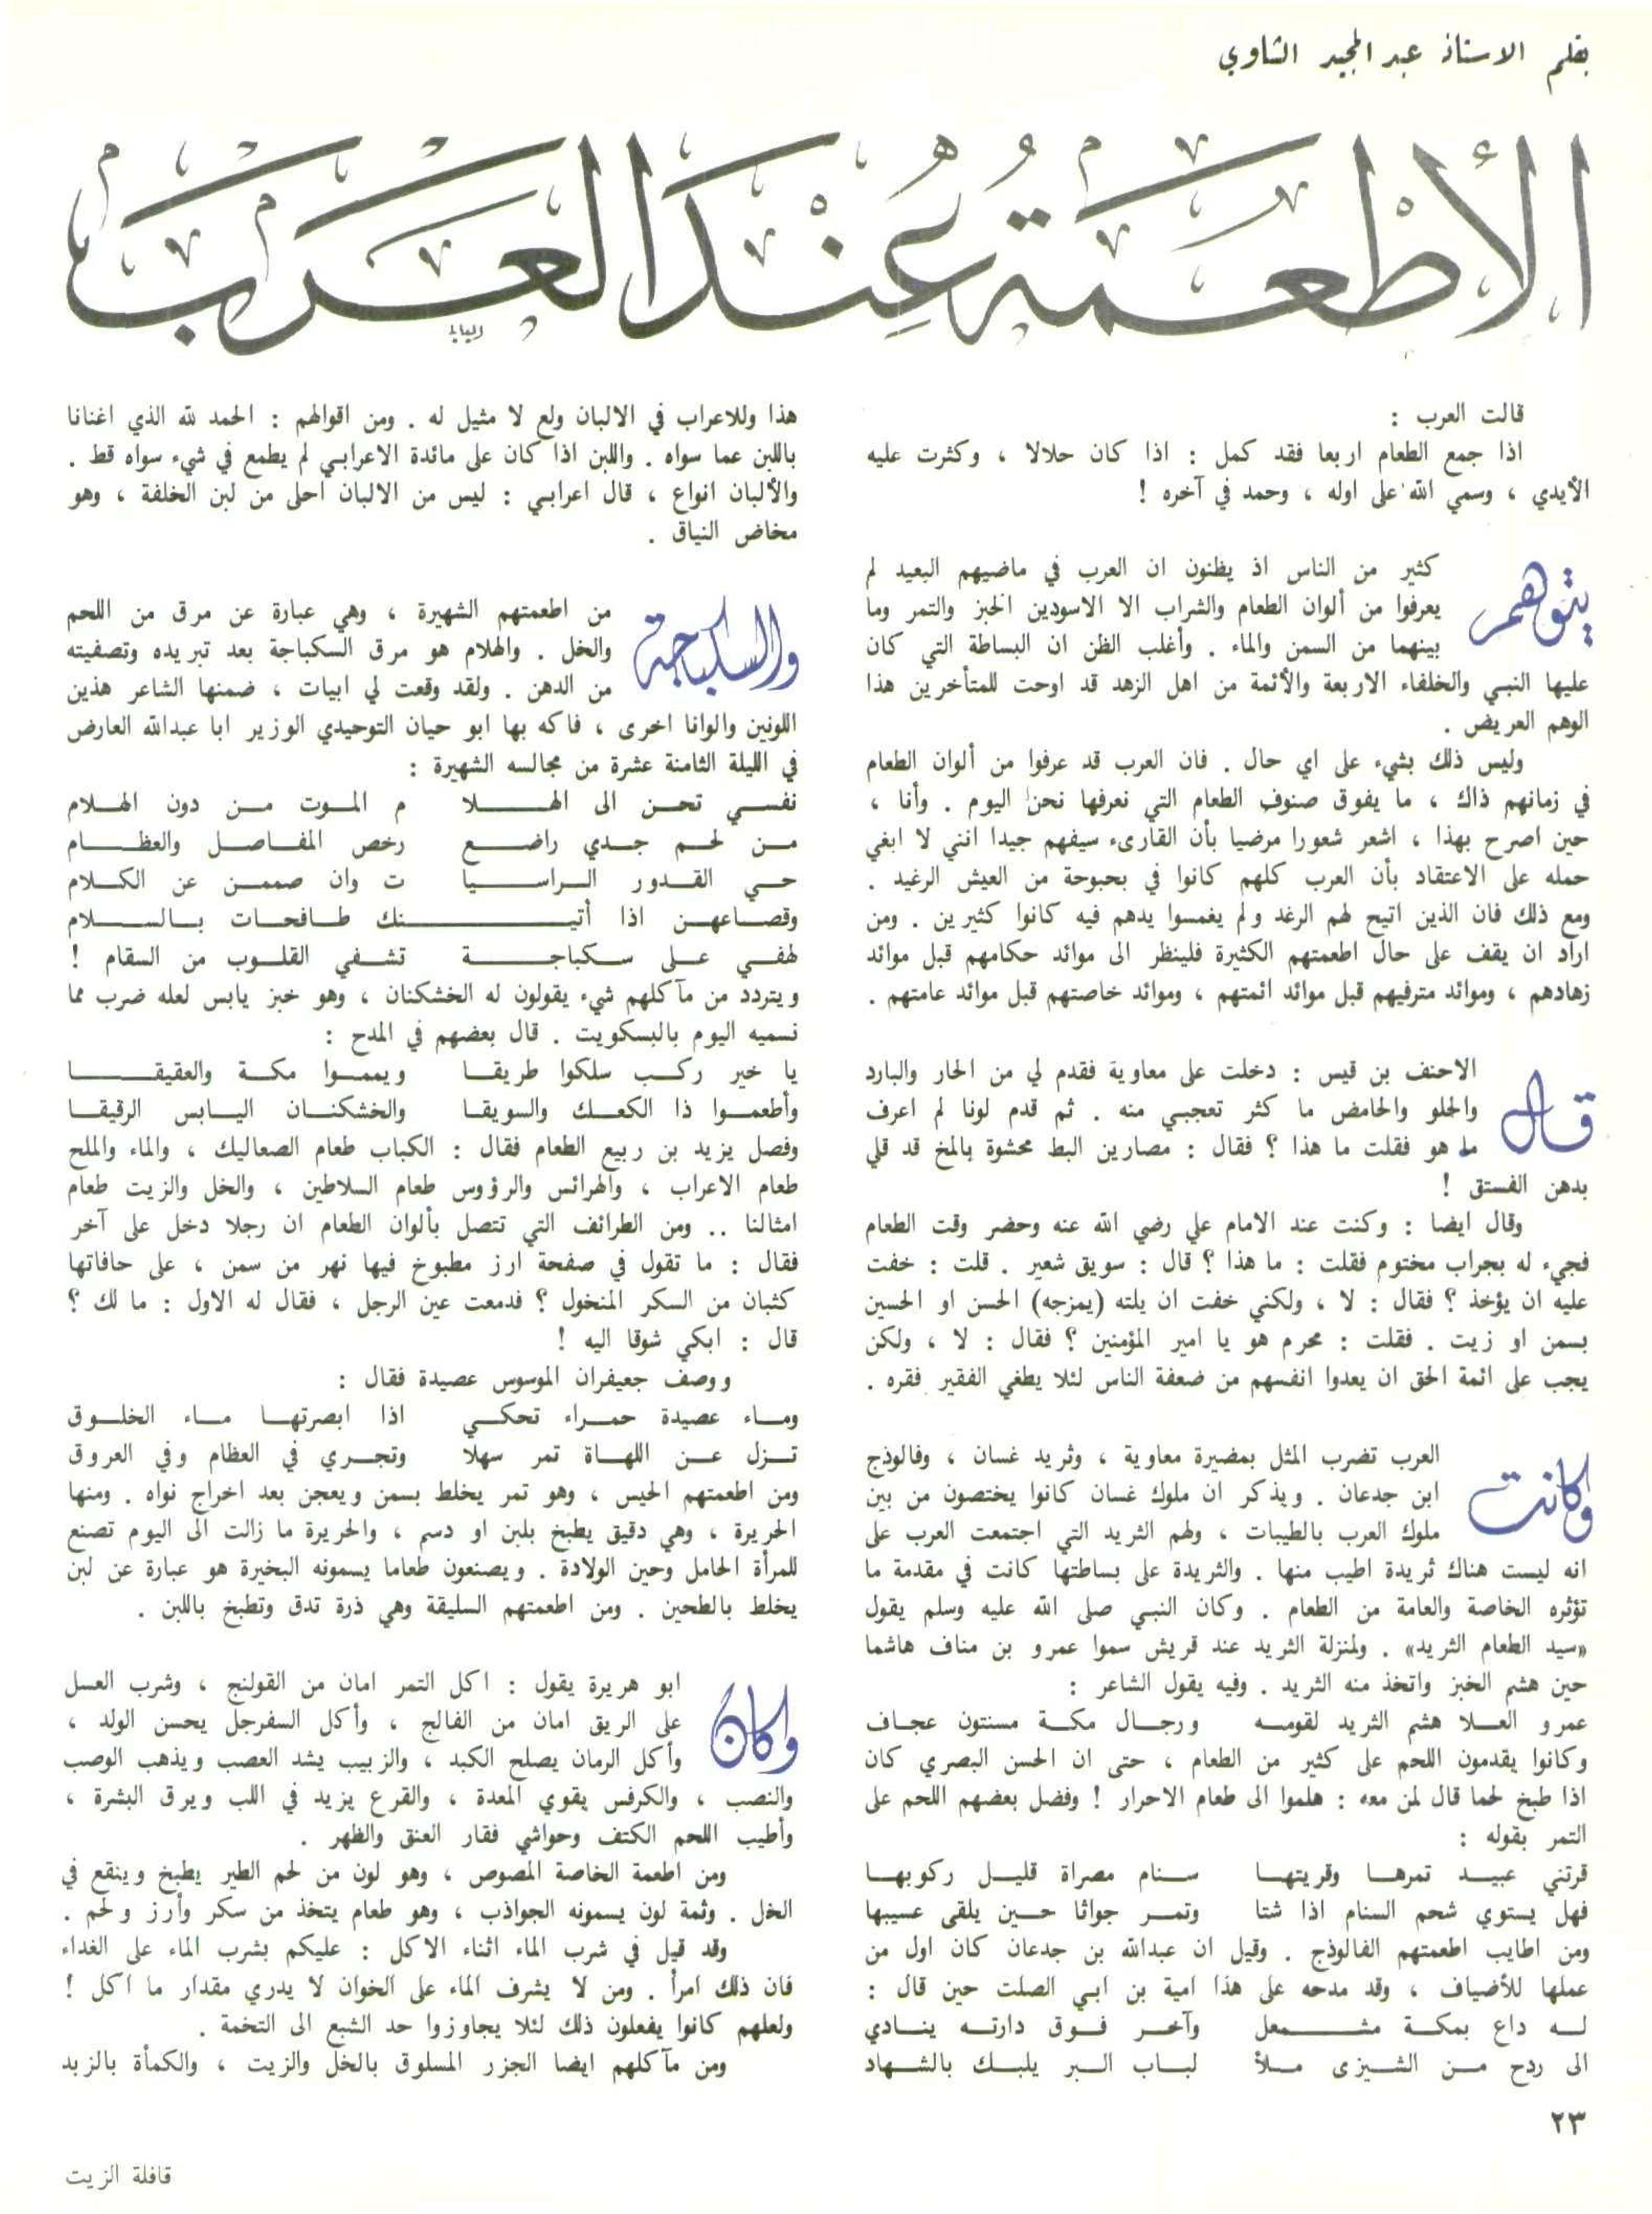 بقلم الاستاذ عبد المجيد الشاوي
الأطعمة عند العرب
قالت العرب :
اذا جمع الطعام اربعا فقد كمل : اذا كان حلالا ، وكثرت عليه
الأيدي ، وسمي الله على اوله ، وحمد في آخره !
يتوهم كثير من الناس اذ يظنون ان العرب في ماضيهم البعيد لم
يعرفوا من ألوان الطعام والشراب الا الاسودين الخبز والتمر وما
بينهما من السمن والماء . وأغلب الظن ان البساطة التي كان
عليها النبي والخلفاء الاربعة والأئمة من اهل الزهد قد اوحت للمتأخرين هذا
الوهم العريض .
وليس ذلك بشيء على اي حال . فان العرب قد عرفوا من ألوان الطعام
في زمانهم ذاك ، ما يفوق صنوف الطعام التي نعرفها نحن اليوم . وأنا ،
حين اصرح بهذا ، اشعر شعورا مرضيا بأن القارىء سيفهم جيدا انني لا ابغي
حمله على الاعتقاد بأن العرب كلهم كانوا في بحبوحة من العيش الرغيد .
ومع ذلك فان الذين اتيح لهم الرغد ولم يغمسوا يدهم فيه كانوا كثيرين . ومن
اراد ان يقف على حال اطعمتهم الكثيرة فلينظر الى موائد حكامهم قبل موائد
زهادهم ، وموائد مترفيهم قبل موائد ائمتهم ، وموائد خاصتهم قبل موائد عامتهم .
قال الاحنف بن قيس : دخلت على معاوية فقدم لي من الحار والبارد
والحلو والحامض ما كثر تعجبي منه . ثم قدم لونا لم اعرف
ما هو فقلت ما هذا ؟ فقال : مصارين البط محشوة بالمخ قد قلي
بدهن الفستق !
وقال ايضا : وكنت عند الامام علي رضي الله عنه وحضر وقت الطعام
فجيء له بجراب مختوم فقلت : ما هذا ؟ قال : سويق شعير . قلت : خفت
عليه ان يؤخذ ؟ فقال : لا ، ولكني خفت ان يلته (يمزجه) الحسن او الحسين
بسمن او زيت . فقلت : محرم هو يا امير المؤمنين ؟ فقال : لا ، ولكن
يجب على ائمة الحق ان يعدوا انفسهم من ضعفة الناس لئلا يطغي الفقير فقره .
وكانت العرب تضرب المثل بمضيرة معاوية ، وثريد غسان ، وفالوذج
ابن جدعان . ويذكر ان ملوك غسان كانوا يختصون من بين
ملوك العرب بالطيبات ، ولهم الثريد التي اجتمعت العرب على
انه ليست هناك ثريدة اطيب منها . والثريدة على بساطتها كانت في مقدمة ما
تؤثره الخاصة والعامة من الطعام . وكان النبي صلى الله عليه وسلم يقول
«سيد الطعام الثريد» . ولمنزلة الثريد عند قريش سموا عمرو بن مناف هاشما
حين هشم الخبز واتخذ منه الثريد . وفيه يقول الشاعر :
عمرو العلا هشم الثريد لقومه ورجال مكة مسنتون عجاف
وكانوا يقدمون اللحم على كثير من الطعام ، حتى ان الحسن البصري كان
اذا طبخ لحما قال لمن معه : هلموا الى طعام الاحرار ! وفضل بعضهم اللحم على
التمر بقوله :
قرتني عبيد تمرها وقريتها سنام مصراة قليل ركوبها
فهل يستوي شحم السنام اذا شتا وتمر جواثا حين يلقى عسيبها
ومن اطايب اطعمتهم الفالوذج . وقيل ان عبدالله بن جدعان كان اول من
عملها للأضياف ، وقد مدحه على هذا امية بن ابي الصلت حين قال :
له داع بمكة مشمعل وآخر فوق دارته ينادي
الى ردح من الشيزى ملأ لباب البر يلبك بالشهاد
هذا وللاعراب في الالبان ولع لا مثيل له . ومن اقوالهم : الحمد لله الذي اغنانا
باللبن عما سواه . واللبن اذا كان على مائدة الاعرابي لم يطمع في شيء سواه قط .
والألبان انواع ، قال اعرابي : ليس من الالبان احلى من لبن الخلفة ، وهو
مخاض النياق .
والسكباجة من اطعمتهم الشهيرة ، وهي عبارة عن مرق من اللحم
والخل . والهلام هو مرق السكباجة بعد تبريده وتصفيته
من الدهن . ولقد وقعت لي ابيات ، ضمنها الشاعر هذين
اللونين والوانا اخرى ، فاكه بها ابو حيان التوحيدي الوزير ابا عبدالله العارض
في الليلة الثامنة عشرة من مجالسه الشهيرة :
نفسي تحن الى الهلا م الموت من دون الهلام
من لحم جدي راضع رخص المفاصل والعظام
حي القدور الراسيا ت وان صممن عن الكلام
وقصاعهن اذا أتيـ ـنك طافحات بالسلام
لهفي على سكباجة تشفي القلوب من السقام !
ويتردد من مآكلهم شيء يقولون له الخشكنان ، وهو خبز يابس لعله ضرب مما
نسميه اليوم بالبسكويت . قال بعضهم في المدح :
يا خير ركب سلكوا طريقا ويمموا مكة والعقيقا
وأطعموا ذا الكعك والسويقا والخشكنان اليابس الرقيقا
وفصل يزيد بن ربيع الطعام فقال : الكباب طعام الصعاليك ، والماء والملح
طعام الاعراب ، والهرائس والرؤوس طعام السلاطين ، والخل والزيت طعام
امثالنا .. ومن الطرائف التي تتصل بألوان الطعام ان رجلا دخل على آخر
فقال : ما تقول في صفحة ارز مطبوخ فيها نهر من سمن ، على حافاتها
كثبان من السكر المنخول ؟ فدمعت عين الرجل ، فقال له الاول : ما لك ؟
قال : ابكي شوقا اليه !
ووصف جعيفران الموسوس عصيدة فقال :
وماء عصيدة حمراء تحكي اذا ابصرتها ماء الخلوق
تزل عن اللهاة تمر سهلا وتجري في العظام وفي العروق
ومن اطعمتهم الحيس ، وهو تمر يخلط بسمن ويعجن بعد اخراج نواه . ومنها
الحريرة ، وهي دقيق يطبخ بلبن او دسم ، والحريرة ما زالت الى اليوم تصنع
للمرأة الحامل وحين الولادة . ويصنعون طعاما يسمونه البخيرة هو عبارة عن لبن
يخلط بالطحين . ومن اطعمتهم السليقة وهي ذرة تدق وتطبخ باللبن .
وكان ابو هريرة يقول : اكل التمر امان من القولنج ، وشرب العسل
على الريق امان من الفالج ، وأكل السفرجل يحسن الولد ،
وأكل الرمان يصلح الكبد ، والزبيب يشد العصب ويذهب الوصب
والنصب ، والكرفس يقوي المعدة ، والقرع يزيد في اللب ويرق البشرة ،
وأطيب اللحم الكتف وحواشي فقار العنق والظهر .
ومن اطعمة الخاصة المصوص ، وهو لون من لحم الطير يطبخ وينقع في
الخل . وثمة لون يسمونه الجواذب ، وهو طعام يتخذ من سكر وأرز ولحم .
وقد قيل في شرب الماء اثناء الاكل : عليكم بشرب الماء على الغداء
فان ذلك امرأ . ومن لا يشرف الماء على الخوان لا يدري مقدار ما اكل !
ولعلهم كانوا يفعلون ذلك لئلا يجاوزوا حد الشبع الى التخمة .
ومن مآكلهم ايضا الجزر المسلوق بالخل والزيت ، والكمأة بالزبد
٢٣
قافلة الزيت